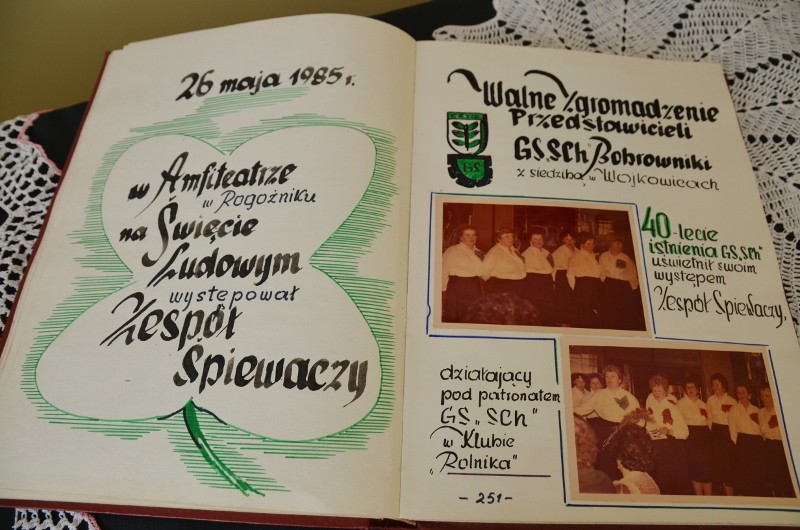 26 maja 1985 r.
w Amfiteatrze
w Rogoźniku
na Święcie
Ludowym
występował
Zespół
Śpiewaczy
Walne Zgromadzenie
Przedstawicieli
GS„SCh" Bobrowniki
z siedzibą w Wojkowicach
GS
40-lecie
istnienia GS„SCh"
uświetnił swoim
występem
Zespół Śpiewaczy,
działający
pod patronatem
GS „SCh"
w Klubie
„Rolnika"
- 251 -